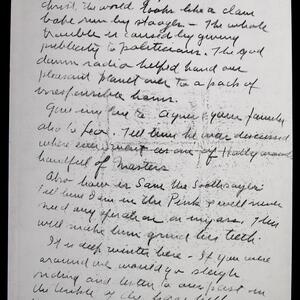 Christ, the world looks like a clam
bake run by stooges - The whole
trouble is caused by giving
publicity to politicians. The god
damn radio helped hand our
pleasant planet over to a pack of
irresponsible hams.
Give my love to Agnes & your family
also to Leo. Tell him he was discussed
where as one of Hollywood
handful of Masters
Also
Tell him I am in the Pink & will never
need any operation or my ass. This
will make him grind his teeth.
It is deep winter here - If you were
around we would go sleigh
riding and listen to our past in
the tinkle of the